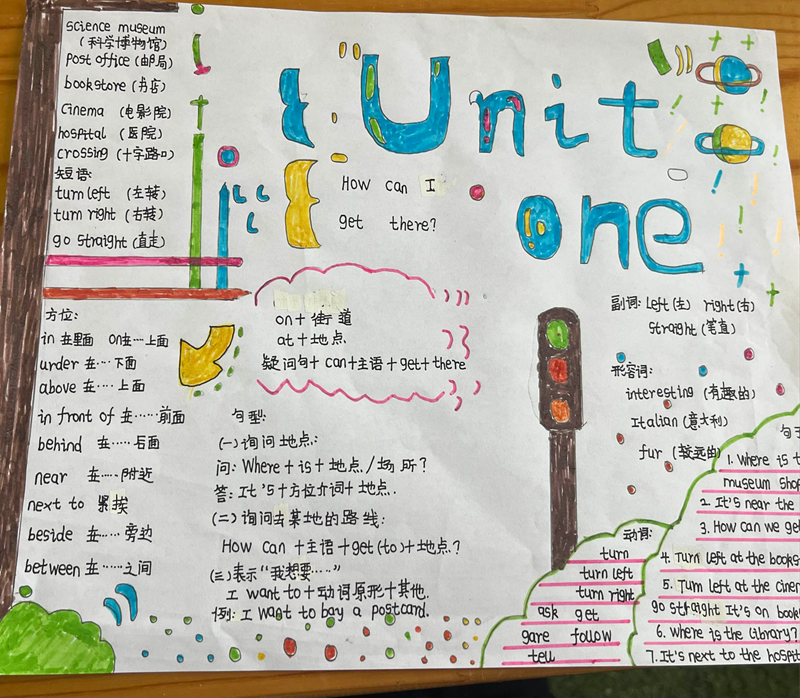 science museum
(科学博物馆)
Post office (邮局)
bookstore (书店)
Cinema (电影院)
hospital (医院)
crossing (十字路口)
短语:
turn left (左转)
turn right (右转)
go straight (直走)
Unit
one
How can I
get there?
方位:
in 在里面 on在…上面
under 在…下面
above 在…上面
in front of 在……前面
behind 在……后面
near 在……附近
next to 紧挨
beside 在……旁边
between 在……之间
on+街道
at+地点.
疑问句+can+主语+get+there
句型:
(一)询问地点:
问: Where+is+地点/场所?
答: It's+方位介词+地点.
(二)询问去某地的路线:
How can+主语+get(to)+地点?
(三)表示“我想要……”
I want to+动词原形+其他.
例: I want to bay a postcard.
副词: left(左) right(右)
straight (笔直)
形容词:
interesting (有趣的)
Italian (意大利)
fur (较远的)
动词:
turn
turn left
turn right
ask get
gare follow
tell
句子
1. Where is t
museum shop
2. It's near the
3. How can we get
4. Turn left at the books
5. Turn left at the cinem
go straight It's on book
6. Where is the library?
7. It's next to the hospit